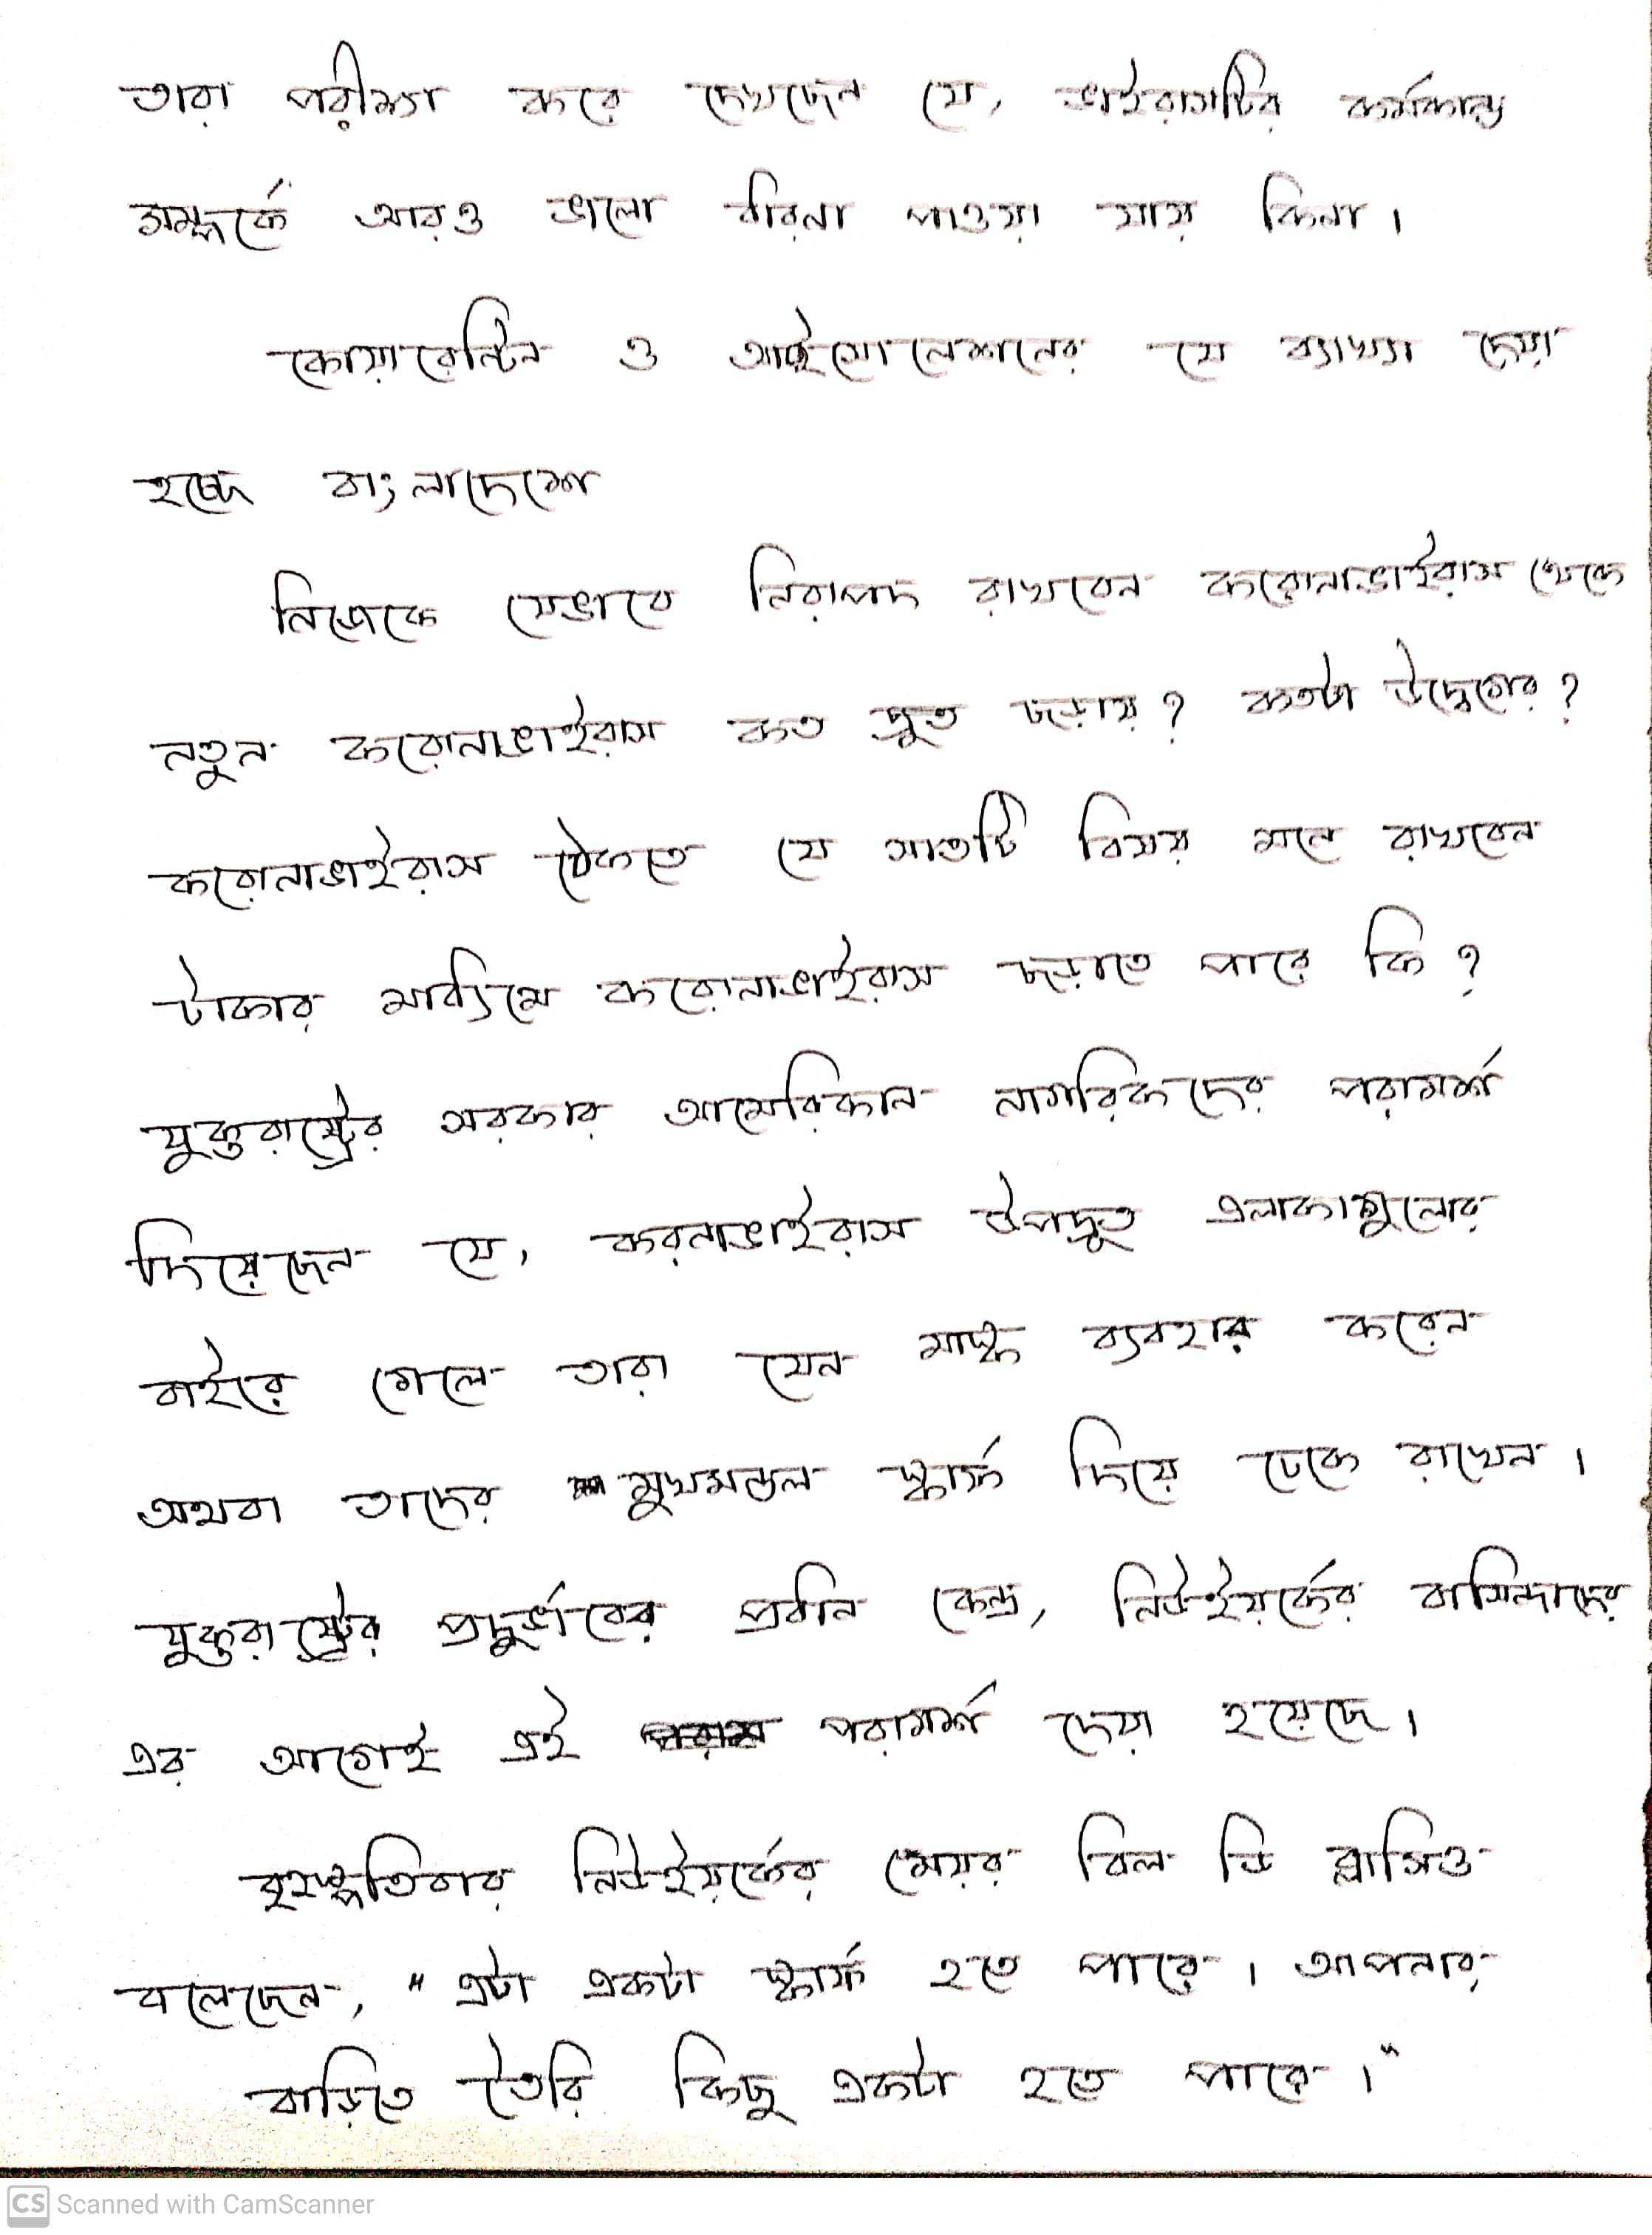 তারা পরীক্ষা করে দেখছেন যে, ভাইরাসটির কর্মকান্ড
সম্পর্কে আরও ভালো ধারনা পাওয়া যায় কিনা।
কোয়ারেন্টিন ও আইসোলেশনের যে ব্যাখ্যা দেয়া
হচ্ছে বাংলাদেশে
নিজেকে যেভাবে নিরাপদ রাখবেন করোনাভাইরাস থেকে
নতুন করোনাভাইরাস কত দ্রুত ছড়ায়? কতটা উদ্বেগের?
করোনাভাইরাস ঠেকাতে যে সাতটি বিষয় মনে রাখবেন
টাকার মাধ্যমে করোনাভাইরাস ছড়াতে পারে কি?
যুক্তরাষ্ট্রের সরকার আমেরিকান নাগরিকদের পরামর্শ
দিয়েছেন যে, করনাভাইরাস উপদ্রুত এলাকাগুলোর
বাইরে গেলে তারা যেন মাস্ক ব্যবহার করেন
অথবা তাদের মুখমন্ডল স্কার্ফ দিয়ে ঢেকে রাখেন।
যুক্তরাষ্ট্রের প্রদুর্ভাবের প্রধান কেন্দ্র, নিউইয়র্কের বাসিন্দাদের
এর আগেই এই পরামর্শ দেয়া হয়েছে।
বৃহস্পতিবার নিউইয়র্কের মেয়র বিল ডি ব্লাসিও
বলেছেন, "এটা একটা স্কার্ফ হতে পারে। আপনার
বাড়িতে তৈরি কিছু একটা হতে পারে।"
CS Scanned with CamScanner